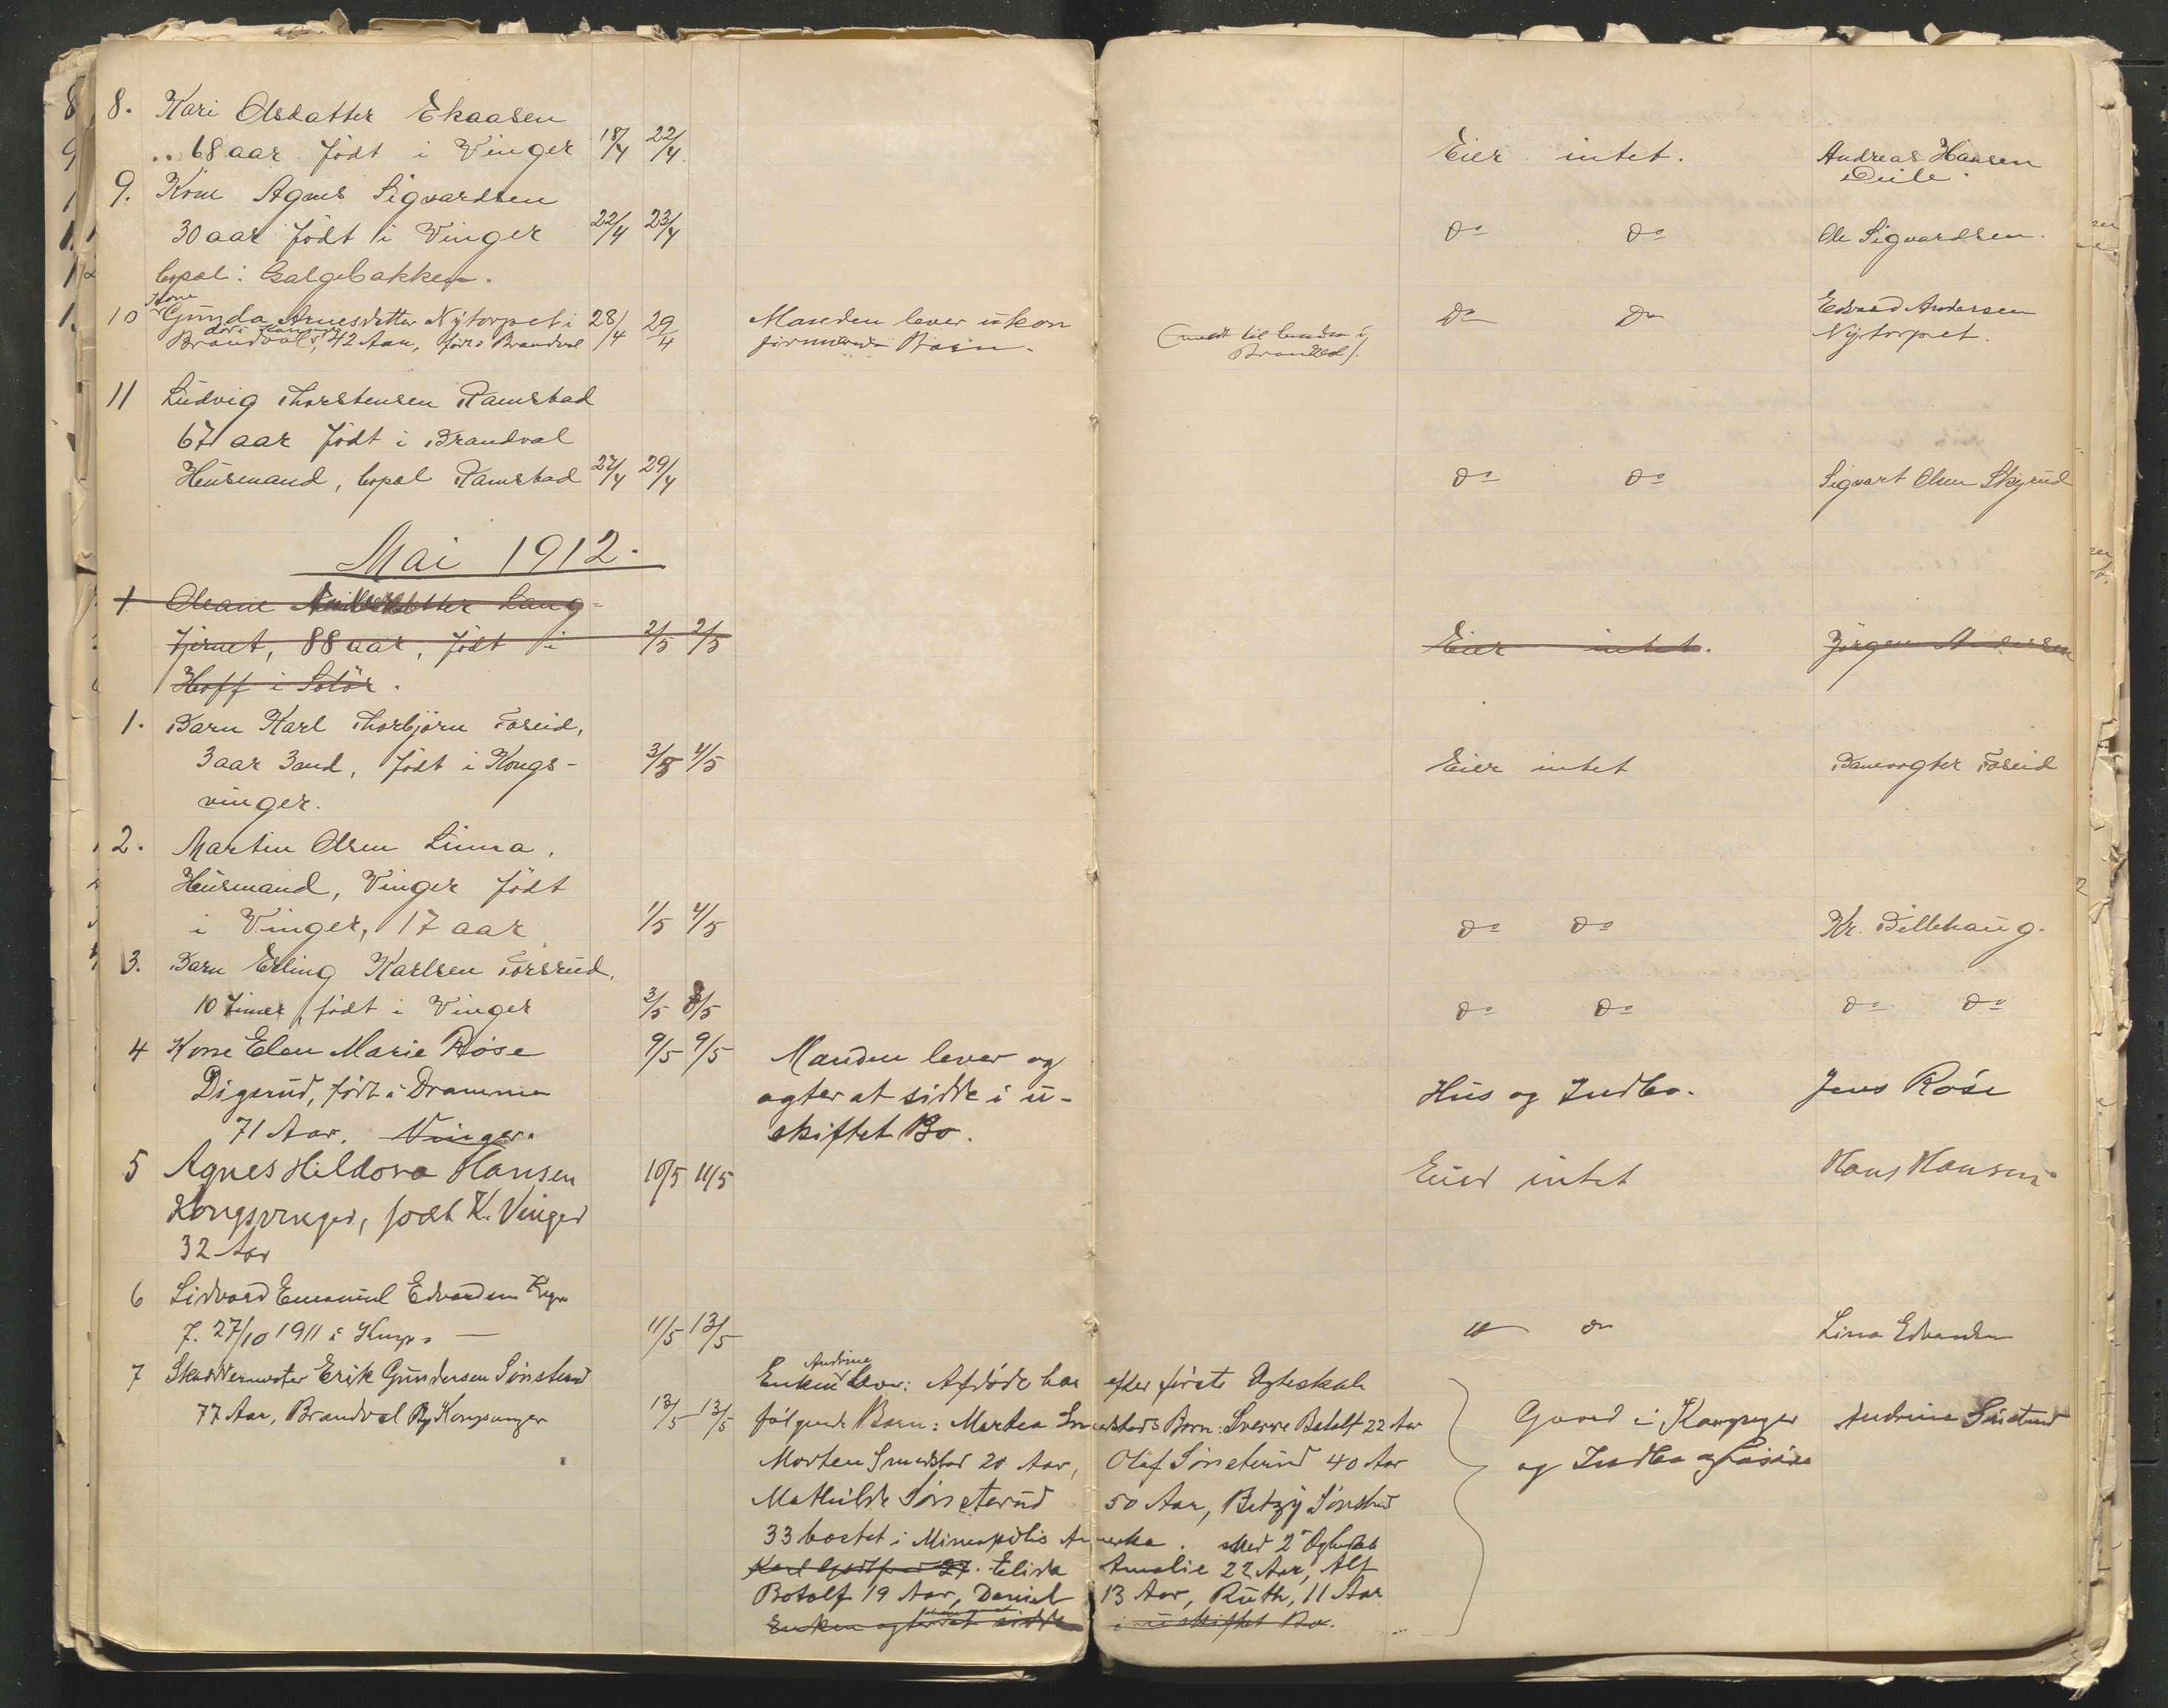 8. Kari Olsdatter Ekaasen
68 aar født i Vinger 18/4 22/4 Eier intet. Andreas Hansen
9. Kone Agnes Sigvardsen
30 aar født i Vinger 22/4 23/4 do do Ole Sigvardsen.
bopæl: Galgebakken.
10 Kone Gunda Arnesdatter Nytorpet i 28/4 29/4 Manden lever ukon do do Edvard Andersen
Brandval, 42 Aar, født i Brandval Børn. Brandval). Nytorpet.
11 Ludvig Thorstensen Ramstad
67 aar født i Brandval
Husmand, bopæl Ramstad 27/4 29/4 do do Sigvart Olsen Skyrud
Mai 1912.
1 Oleane Lang-
tjernet, 88 aar, født i 2/5 2/5 Eier intet. Jørgen Andersen
Hoff i Solør.
1. Barn Karl Thorbjørn Foseid,
3 aar 3 md, født i Kongs- 3/5 4/5 Eier intet Banevogter Foseid
vinger.
2. Martin Olsen Linna,
Husmand, Vinger født
i Vinger, 17 aar 1/5 4/5 do do Kr. Lillehaug.
3. Barn Erling Karlsen Forsrud,
10 timer, født i Vinger 3/5 8/5 do do do do
4 Kone Elen Marie Røse 9/5 9/5 Manden lever og
Digerud, født i Drammen agter at sidde i u- Hus og Indbo. Jens Røse
71 Aar. Vinger. skiftet Bo.
5 Agnes Hildora Hansen 10/5 11/5 Eier intet Hans Hansen
Kongsvinger, født K.Vinger
32 Aar
6 Sidvard Emanuel Edvardsen
f. 27/10 1911 i 11/5 13/5 do Lina Edvardsen
7 Skuddermester Erik Gundersen Sønsterud Enken Andrine lever: Afdøde har efter første Ægteskab
77 Aar, Brandval Kongsvinger 13/5 13/5 følgende Barn: Martea Smedstads Børn: Sverre Botolf 22 Aar Gaard i Kongsvinger Andrine Sønsterud
Morten Smedstad 20 Aar, Olaf Sønsterud 40 Aar og Indbo og Løsøre
Mathilde Sønsterud 50 Aar, Betzy Sønsterud
33 bostet i Mineapolis Amerika. Med 2det Ægteskab
Karl 27. Elida Amalie 22 Aar, Alf
Botolf 19 Aar, Daniel 13 Aar, Ruth, 11 Aar
Enken agter at sidde i uskiftet Bo.